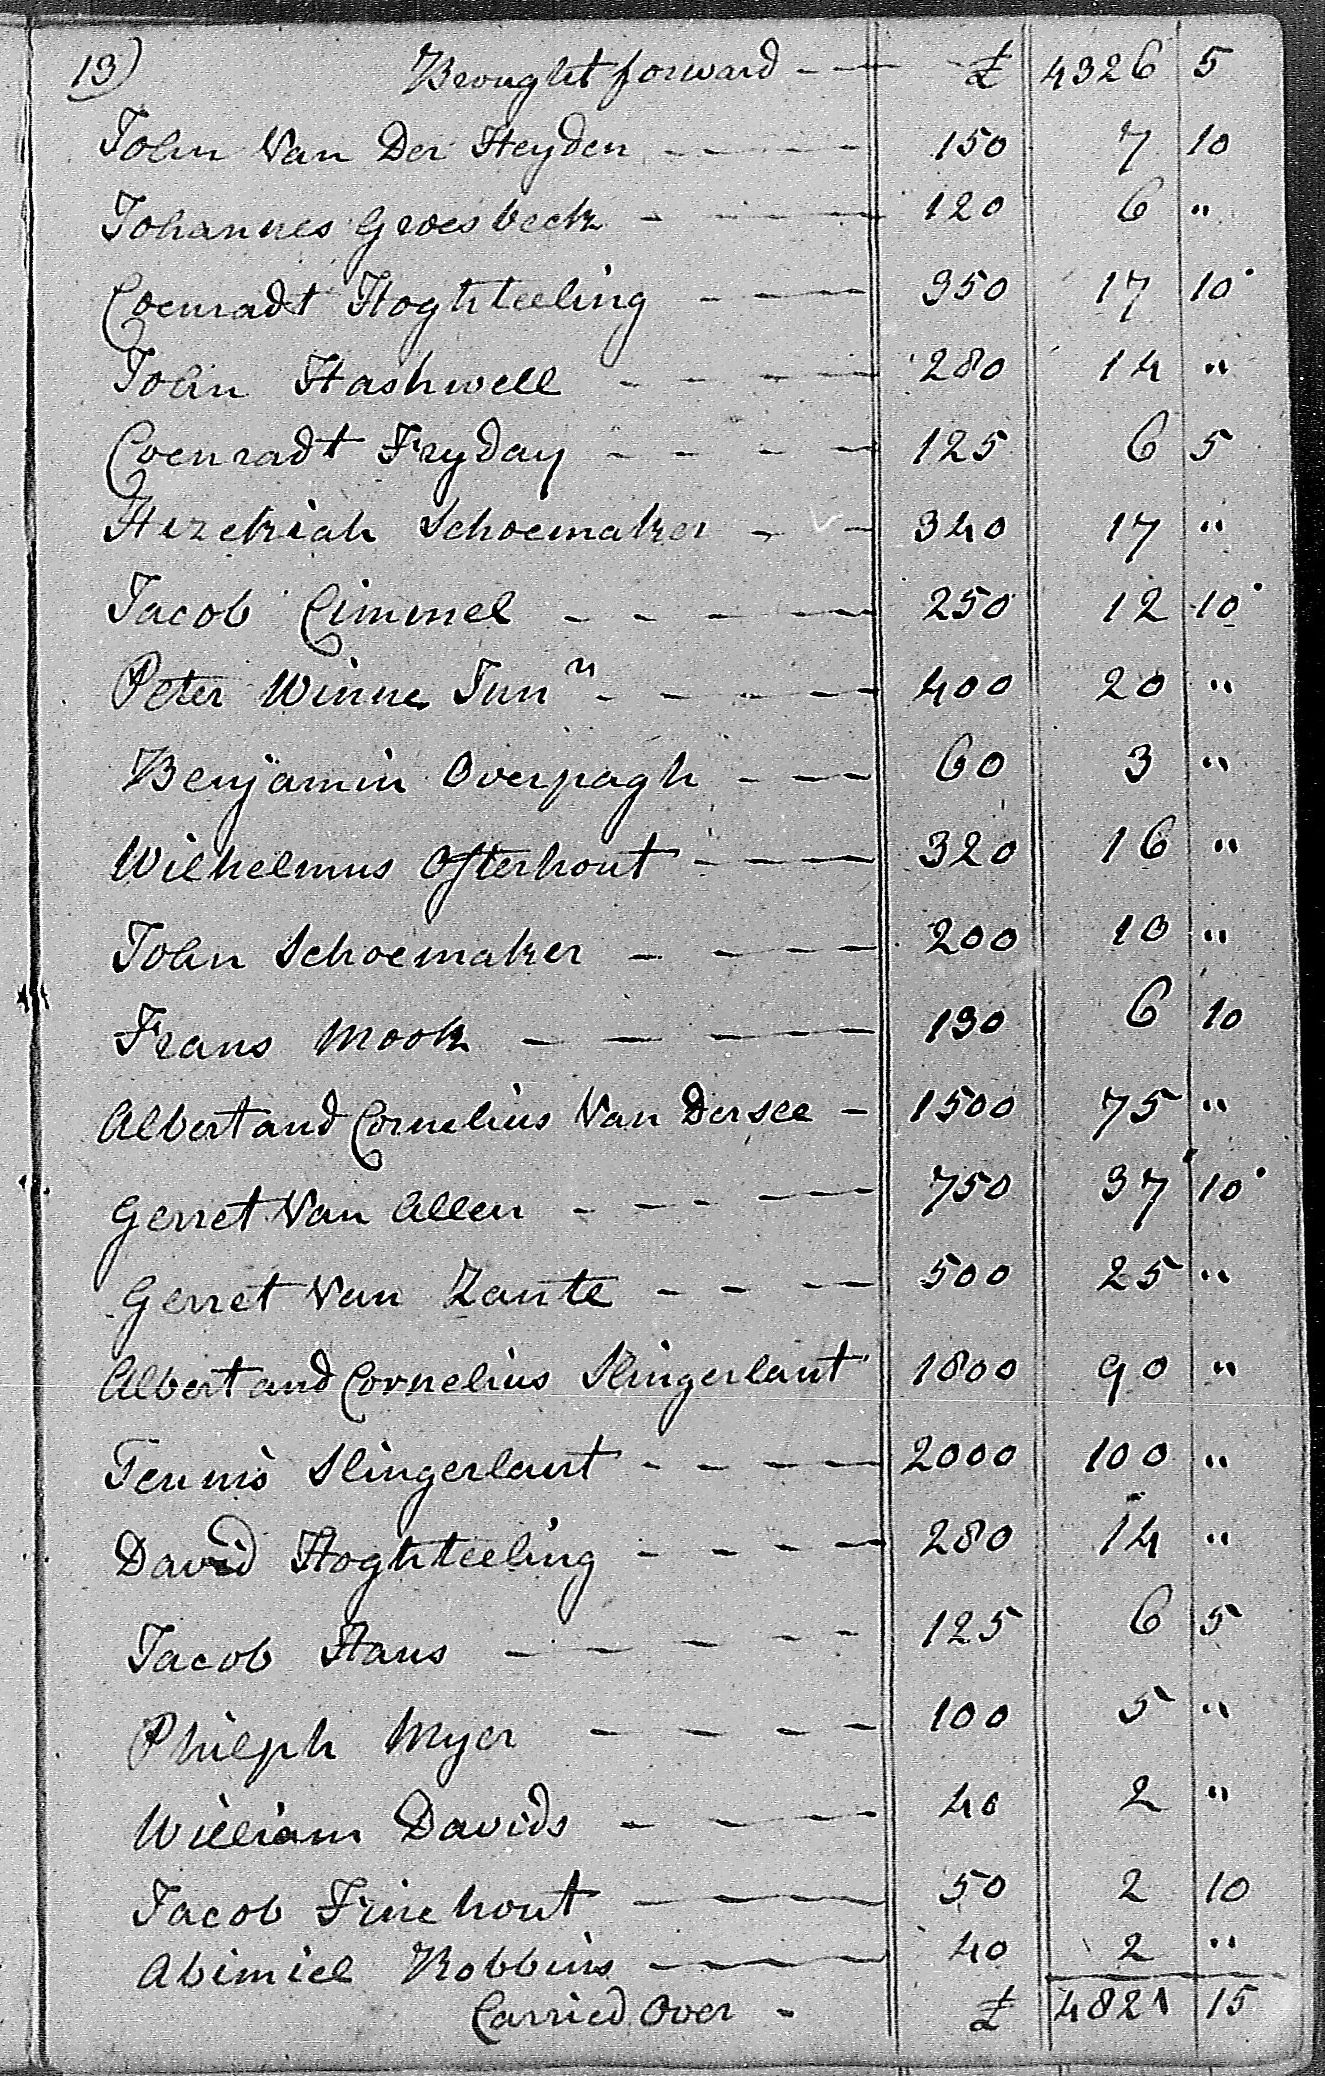 13) Brought forward - - £ 4326 5
John Van Der Heyden - - - - 150 7 10
Johannes Groesbeck - - - - 120 6 "
Coenradt Hoghteeling - - - 350 17 10
John Hashwell - - - - 280 14 "
Coenradt Fryday - - - - 125 6 5
Hezekiah Schoemaker - - 340 17 "
Jacob Cimmel - - - - 250 12 10
Peter Winne Junr - - - - 400 20 "
Benjamin Overpagh - - - 60 3 "
Wilhelmus Osterhout - - - 320 16 "
John Schoemaker - - - - 200 10 "
Frans Mook - - - - 130 6 10
Albert and Cornelius Van Dersee - 1500 75 "
Gerret Van Allen - - - - 750 37 10
Gerret Van Zante - - - - 500 25 "
Albert and Cornelius Slingerlant 1800 90 "
Teunis Slingerlant - - - - 2000 100 "
David Hoghteeling - - - - 280 14 "
Jacob Haus - - - - - 125 6 5
Philiph Myer - - - - 100 5 "
William Davids - - - - 40 2 "
Jacob Finehout - - - - 50 2 10
Abimiel Robbins - - - - 40 2 "
Carried Over - £ 4821 15